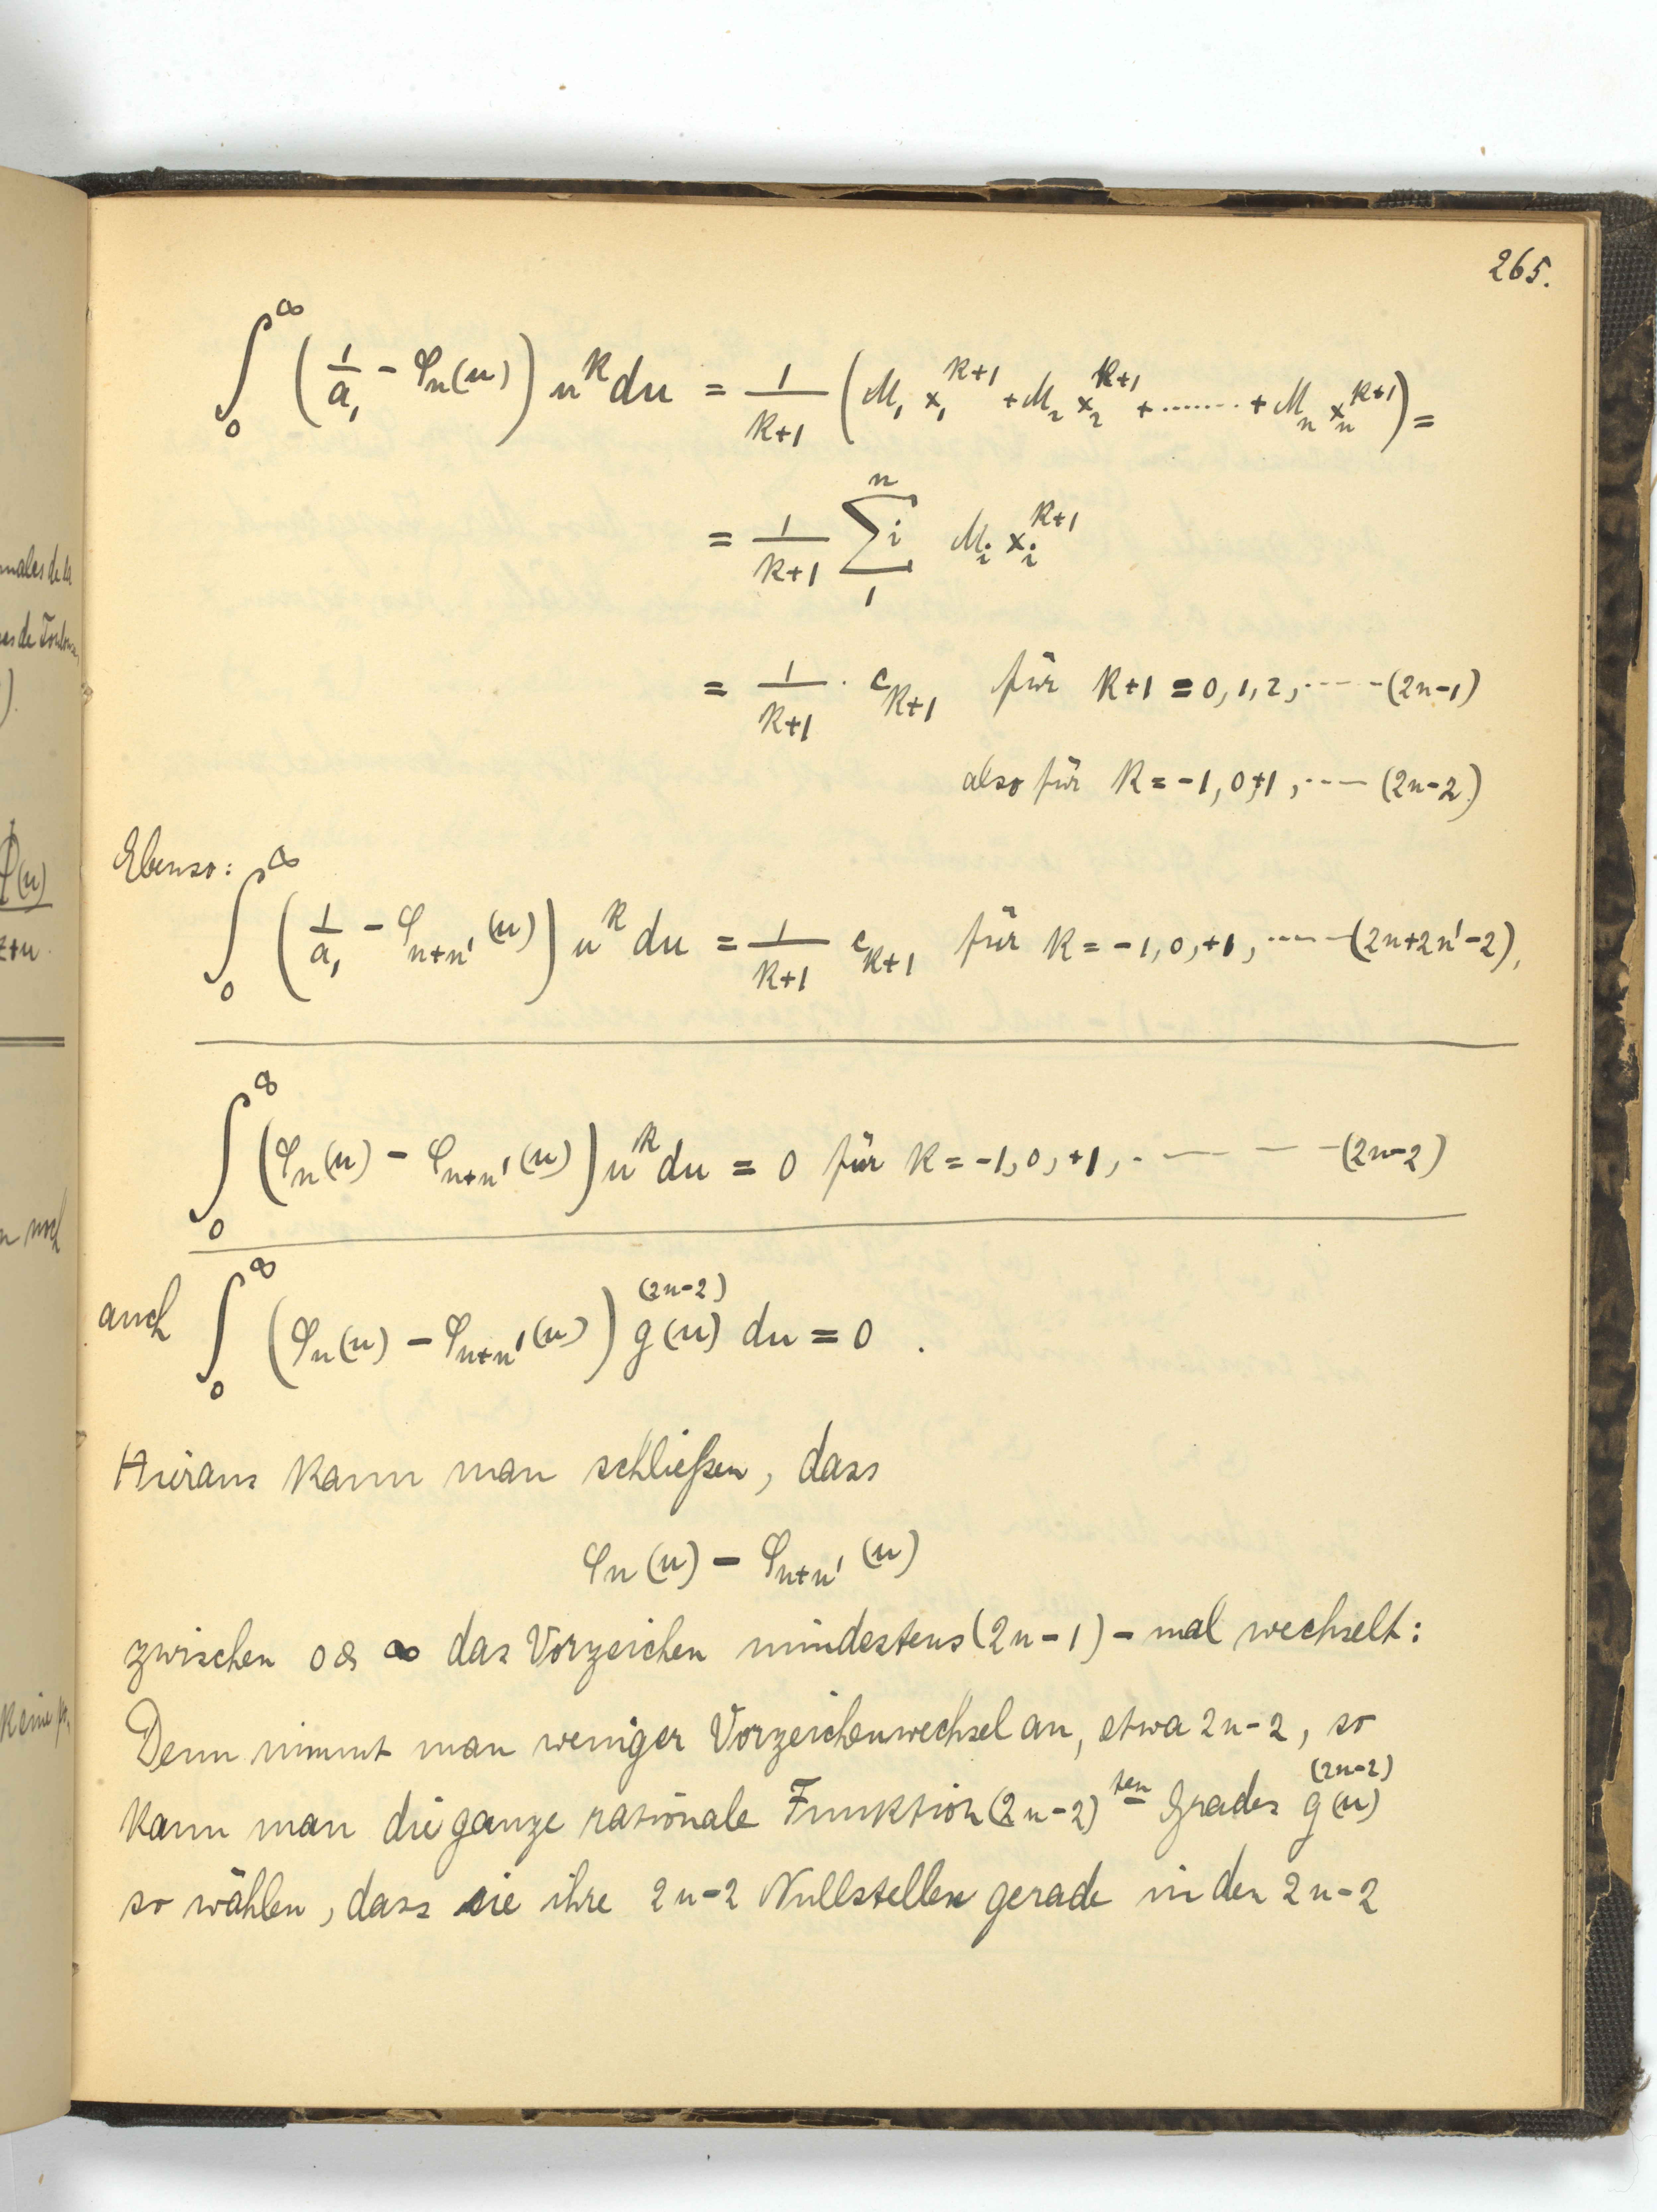 265.
∫₀^∞ (1/a₁ - φₙ(u)) u^k du = 1/(k+1) (M₁ x₁^{k+1} + M₂ x₂^{k+1} + ........ + Mₙ xₙ^{k+1}) =
= 1/(k+1) Σᵢ₁ⁿ Mᵢ xᵢ^{k+1}
= 1/(k+1) · c_{k+1} für k+1 = 0, 1, 2, ---- (2n-1)
also für k = -1, 0, +1, ---- (2n-2)
Ebenso:
∫₀^∞ (1/a₁ - φ_{n+n'}(u)) u^k du = 1/(k+1) c_{k+1} für k = -1, 0, +1, ---- (2n+2n'-2),
∫₀^∞ (φₙ(u) - φ_{n+n'}(u)) u^k du = 0 für k = -1, 0, +1, ---- (2n-2)
auch ∫₀^∞ (φₙ(u) - φ_{n+n'}(u)) g^{(2n-2)}(u) du = 0 .
Hieraus kann man schließen, dass
φₙ(u) - φ_{n+n'}(u)
zwischen 0 & ∞ das Vorzeichen mindestens (2n-1) - mal wechselt:
Denn nimmt man weniger Vorzeichenwechsel an, etwa 2n-2, so
kann man die ganze rationale Funktion (2n-2)ten Grades g^{(2n-2)}(u)
so wählen, dass sie ihre 2n-2 Nullstellen gerade in den 2n-2